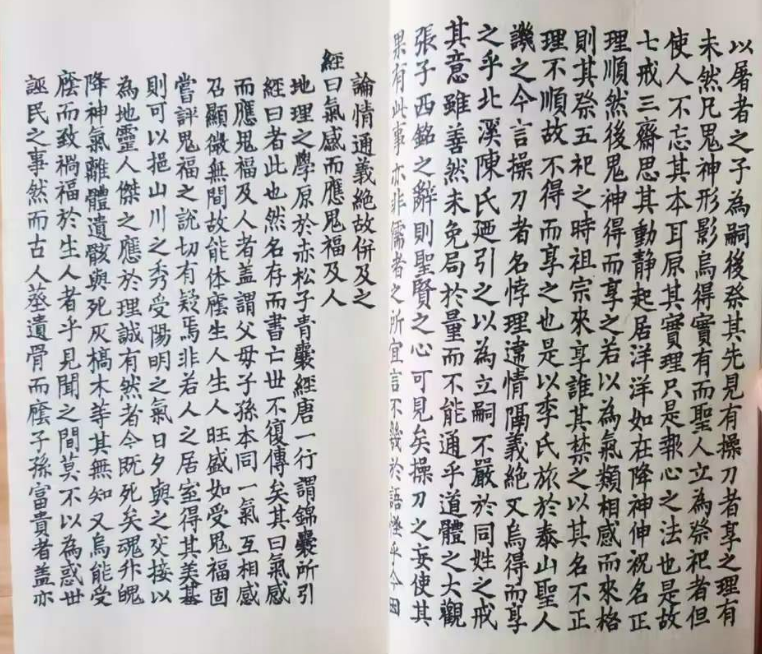 以屠者之子為嗣後祭其先見有操刀者享之理有
未然凡鬼神形影烏得實有而聖人立為祭祀者但
使人不忘其本耳原其實理只是報心之法也是故
七戒三齋思其動靜起居洋洋如在降神伸祝名正
理順然後鬼神得而享之若以為氣類相感而來格
則其祭五祀之時祖宗來享誰其禁之以其名不正
理不順故不得而享之也是以季氏旅於泰山聖人
譏之今言操刀者名悖理違情隔義絶又烏得而享
之乎北溪陳氏廼引之以為立嗣不嚴於同姓之戒
其意雖善然未免局於量而不能通乎道體之大觀
張子西銘之辭則聖賢之心可見矣操刀之妄使其
果有此事亦非儒者之所宜言不幾於語怪乎今因
論情通義絶故併及之
經曰氣感而應鬼福及人
地理之學原於赤松子青囊經唐一行謂錦囊所引
經曰者此也然名存而書亡世不復傳矣其曰氣感
而應鬼福及人者盖謂父母子孫本同一氣互相感
召顯微無間故能体廕生人生人旺盛如受鬼福固
嘗評鬼福之說切有疑焉非若人之居室得其美基
則可以挹山川之秀受陽明之氣日夕與之交接以
為地靈人傑之應於理誠有然者今既死矣魂升魄
降神氣離體遺骸與死灰槁木等其無知又烏能受
廕而致禍福於生人者乎見聞之間莫不以為惑世
誣民之事然而古人塟遺骨而廕子孫富貴者盖亦